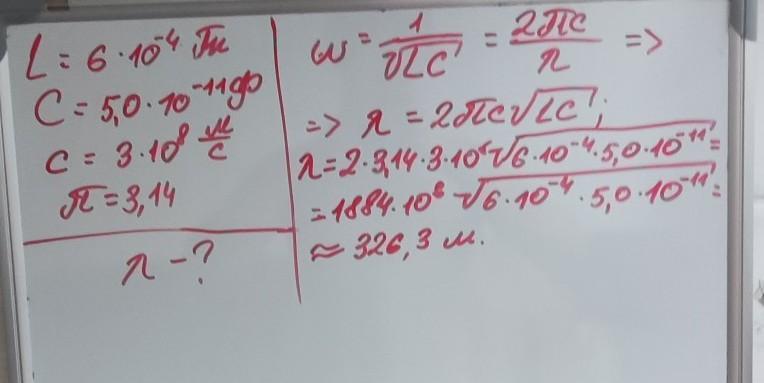 L = 6 · 10⁻⁴ Гн
C = 5,0 · 10⁻¹¹ф
c = 3 · 10⁸ м/с
π = 3,14
λ - ?
ω = 1/√LC = 2πc/λ =>
=> λ = 2πc√LC;
λ = 2 · 3,14 · 3 · 10⁸ √6 · 10⁻⁴ · 5,0 · 10⁻¹¹ =
= 1884 · 10⁸ √6 · 10⁻⁴ · 5,0 · 10⁻¹¹ =
≈ 326,3 м.